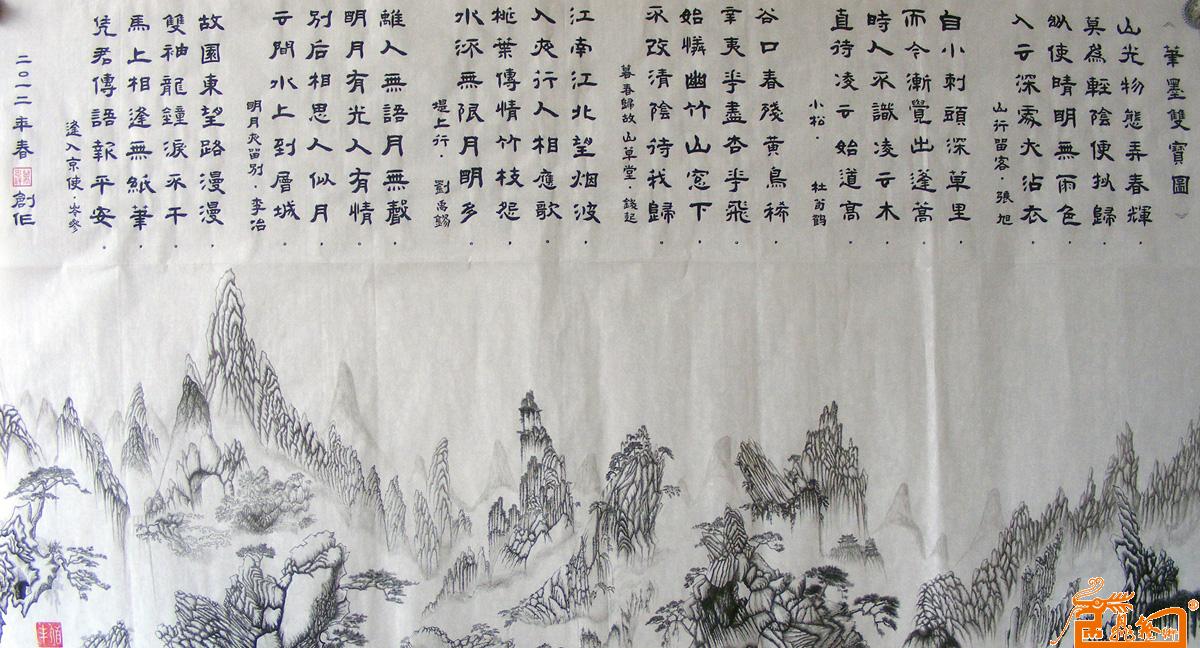 《筆墨雙寶圖》
山光物態弄春輝．
莫爲輕陰便拟歸．
纵使晴明無雨色．
入云深處亦沾衣．
山行留客．張旭
自小刺頭深草里．
而今漸覺出蓬蒿．
時人不識凌云木．
直待凌云始道高．
小松．杜荀鶴
谷口春殘黄鳥稀．
辛夷花盡杏花飛．
始憐幽竹山窓下．
不改清陰待我歸．
暮春歸故山草堂．錢起
江南江北望烟波．
入夜行人相應歌．
桃葉傳情竹枝怨．
水流無限月明多．
堤上行．劉禹錫
離人無語月無聲．
明月有光人有情．
別后相思人似月．
云間水上到層城．
明月夜留別．李冶
故園東望路漫漫．
雙袖龍鐘淚不干．
馬上相逢無紙筆．
凭君傳語報平安．
逢入京使．岑參
二〇一二年春 創作